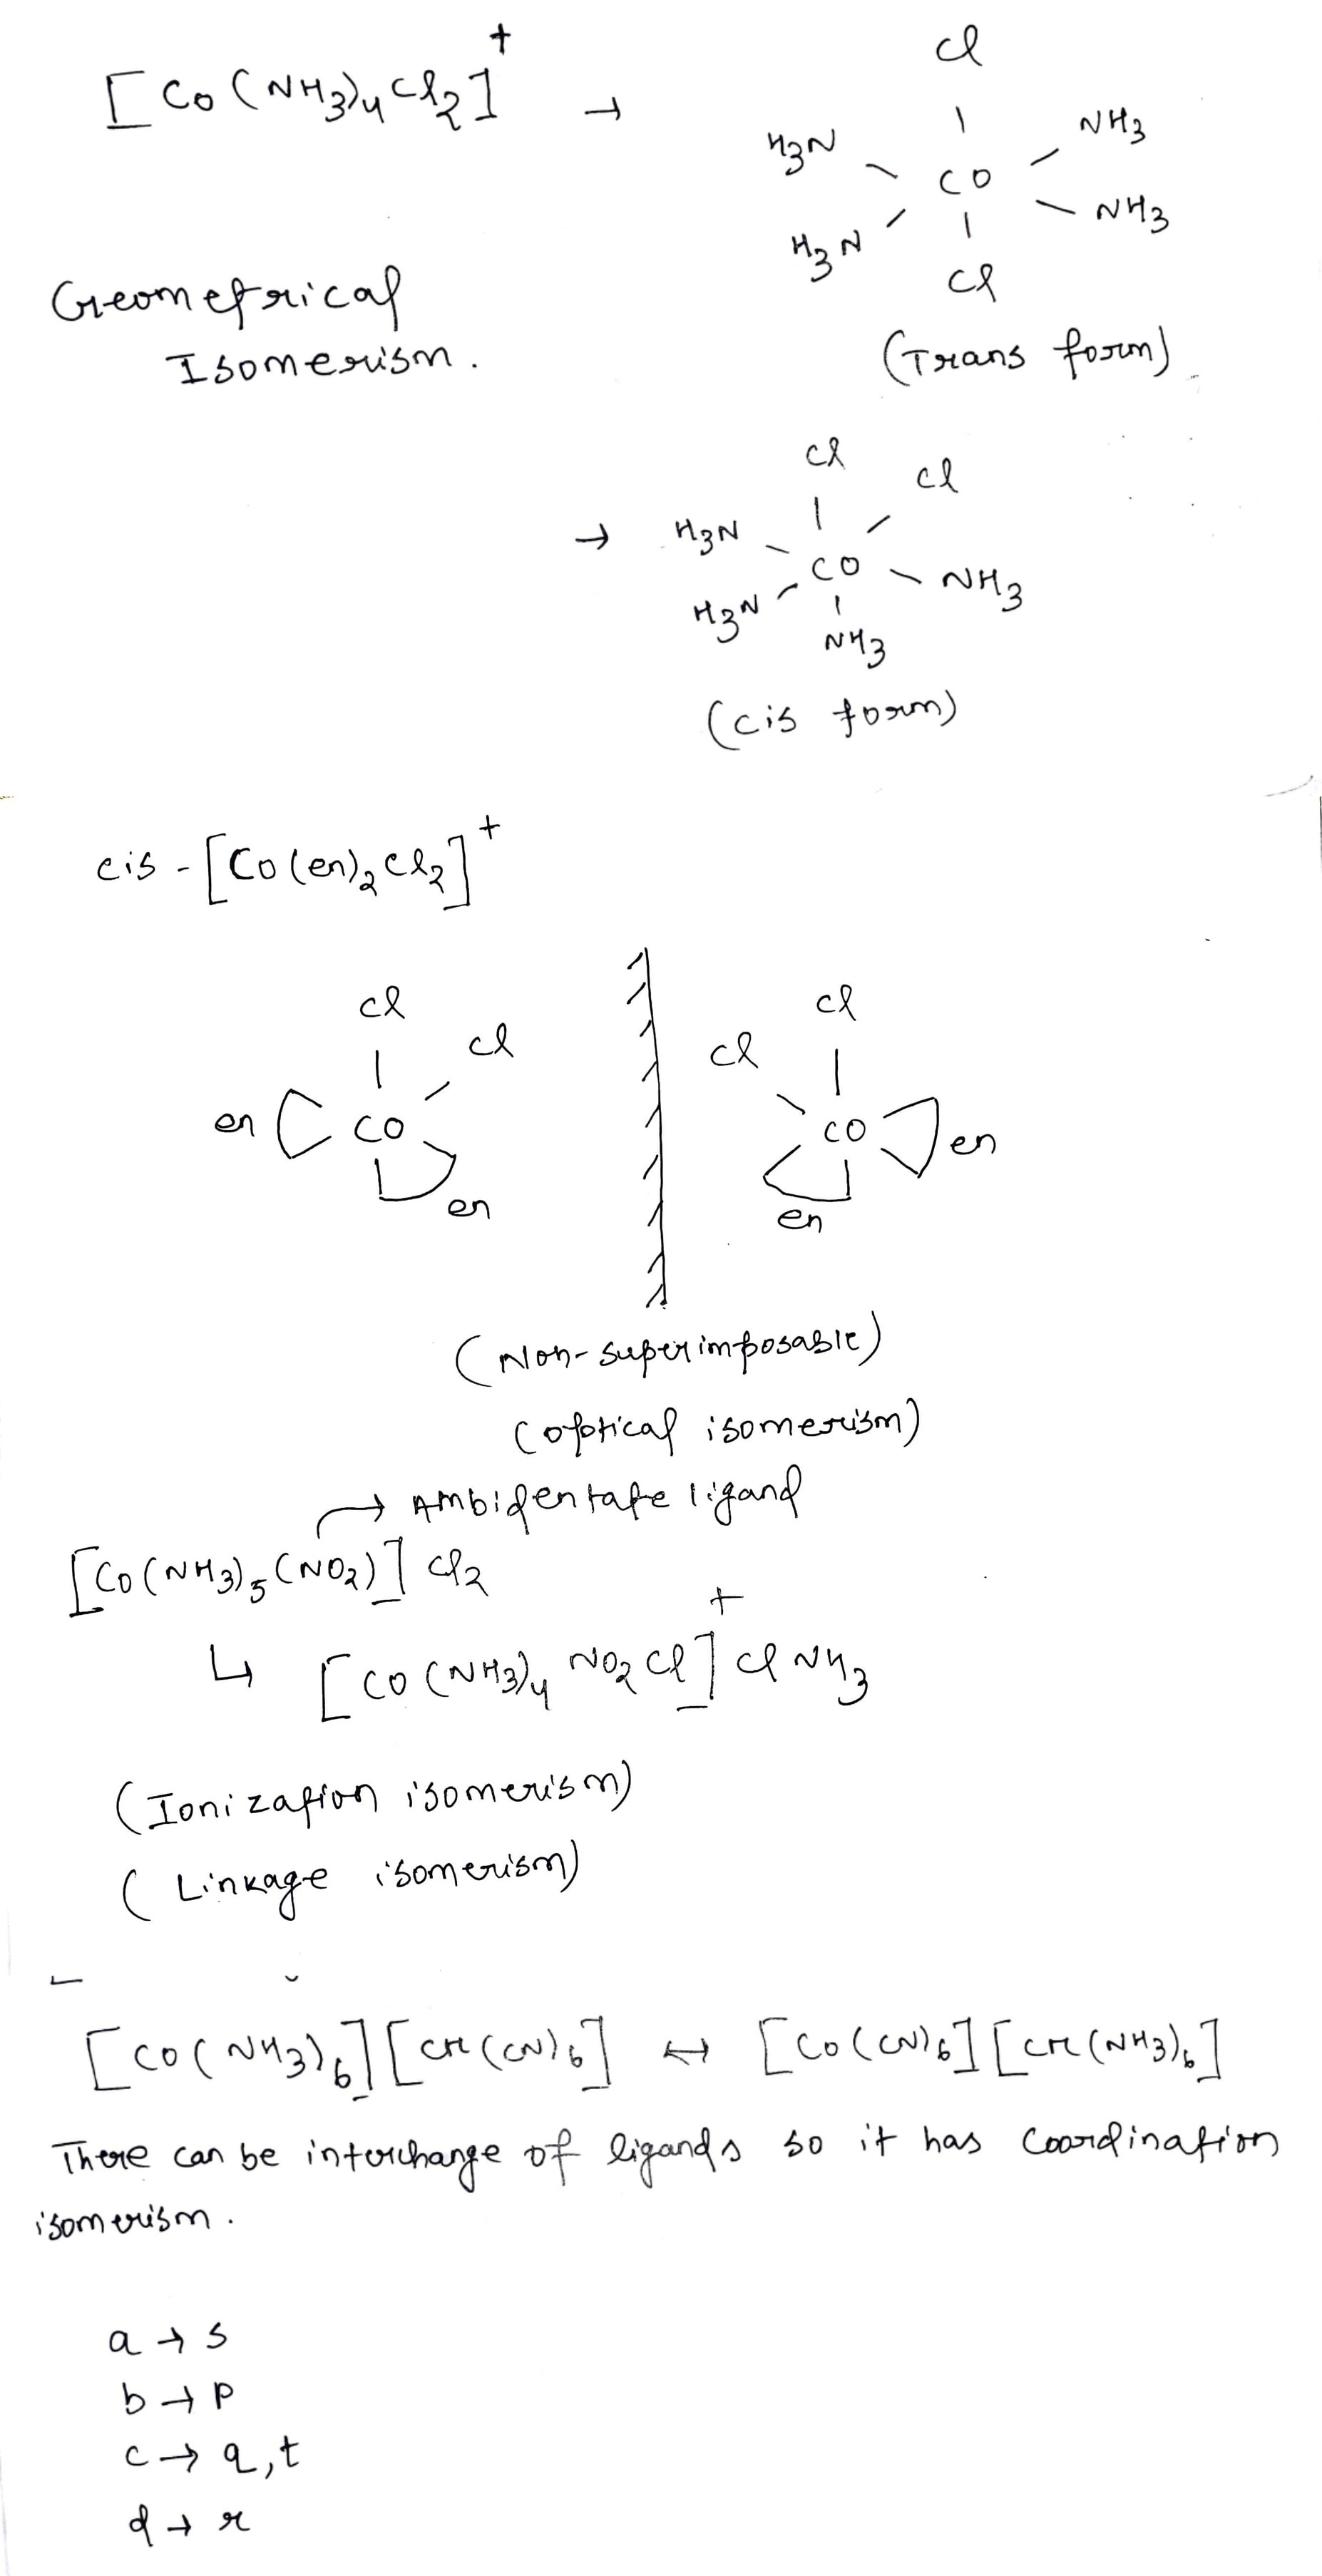 [Co(NH3)4Cl2]+ →
Cl
H3N NH3
Co
H3N NH3
Cl
Geometrical
Isomerism.
(Trans form)
Cl
Cl
→ H3N
Co
NH3
H3N
NH3
(cis form)
cis-[Co(en)2Cl2]+
Cl Cl
Cl Cl
en Co Co en
en en
(Non-superimposable)
(optical isomerism)
→ Ambidentate ligand
[Co(NH3)5(NO2)]Cl2
↳ [Co(NH3)4 NO2 Cl]+ Cl NH3
(Ionization isomerism)
(Linkage isomerism)
[Co(NH3)6][Cr(CN)6] ↔ [Co(CN)6][Cr(NH3)6]
There can be interchange of ligands so it has Coordination
isomerism.
a → s
b → p
c → q,t
d → r